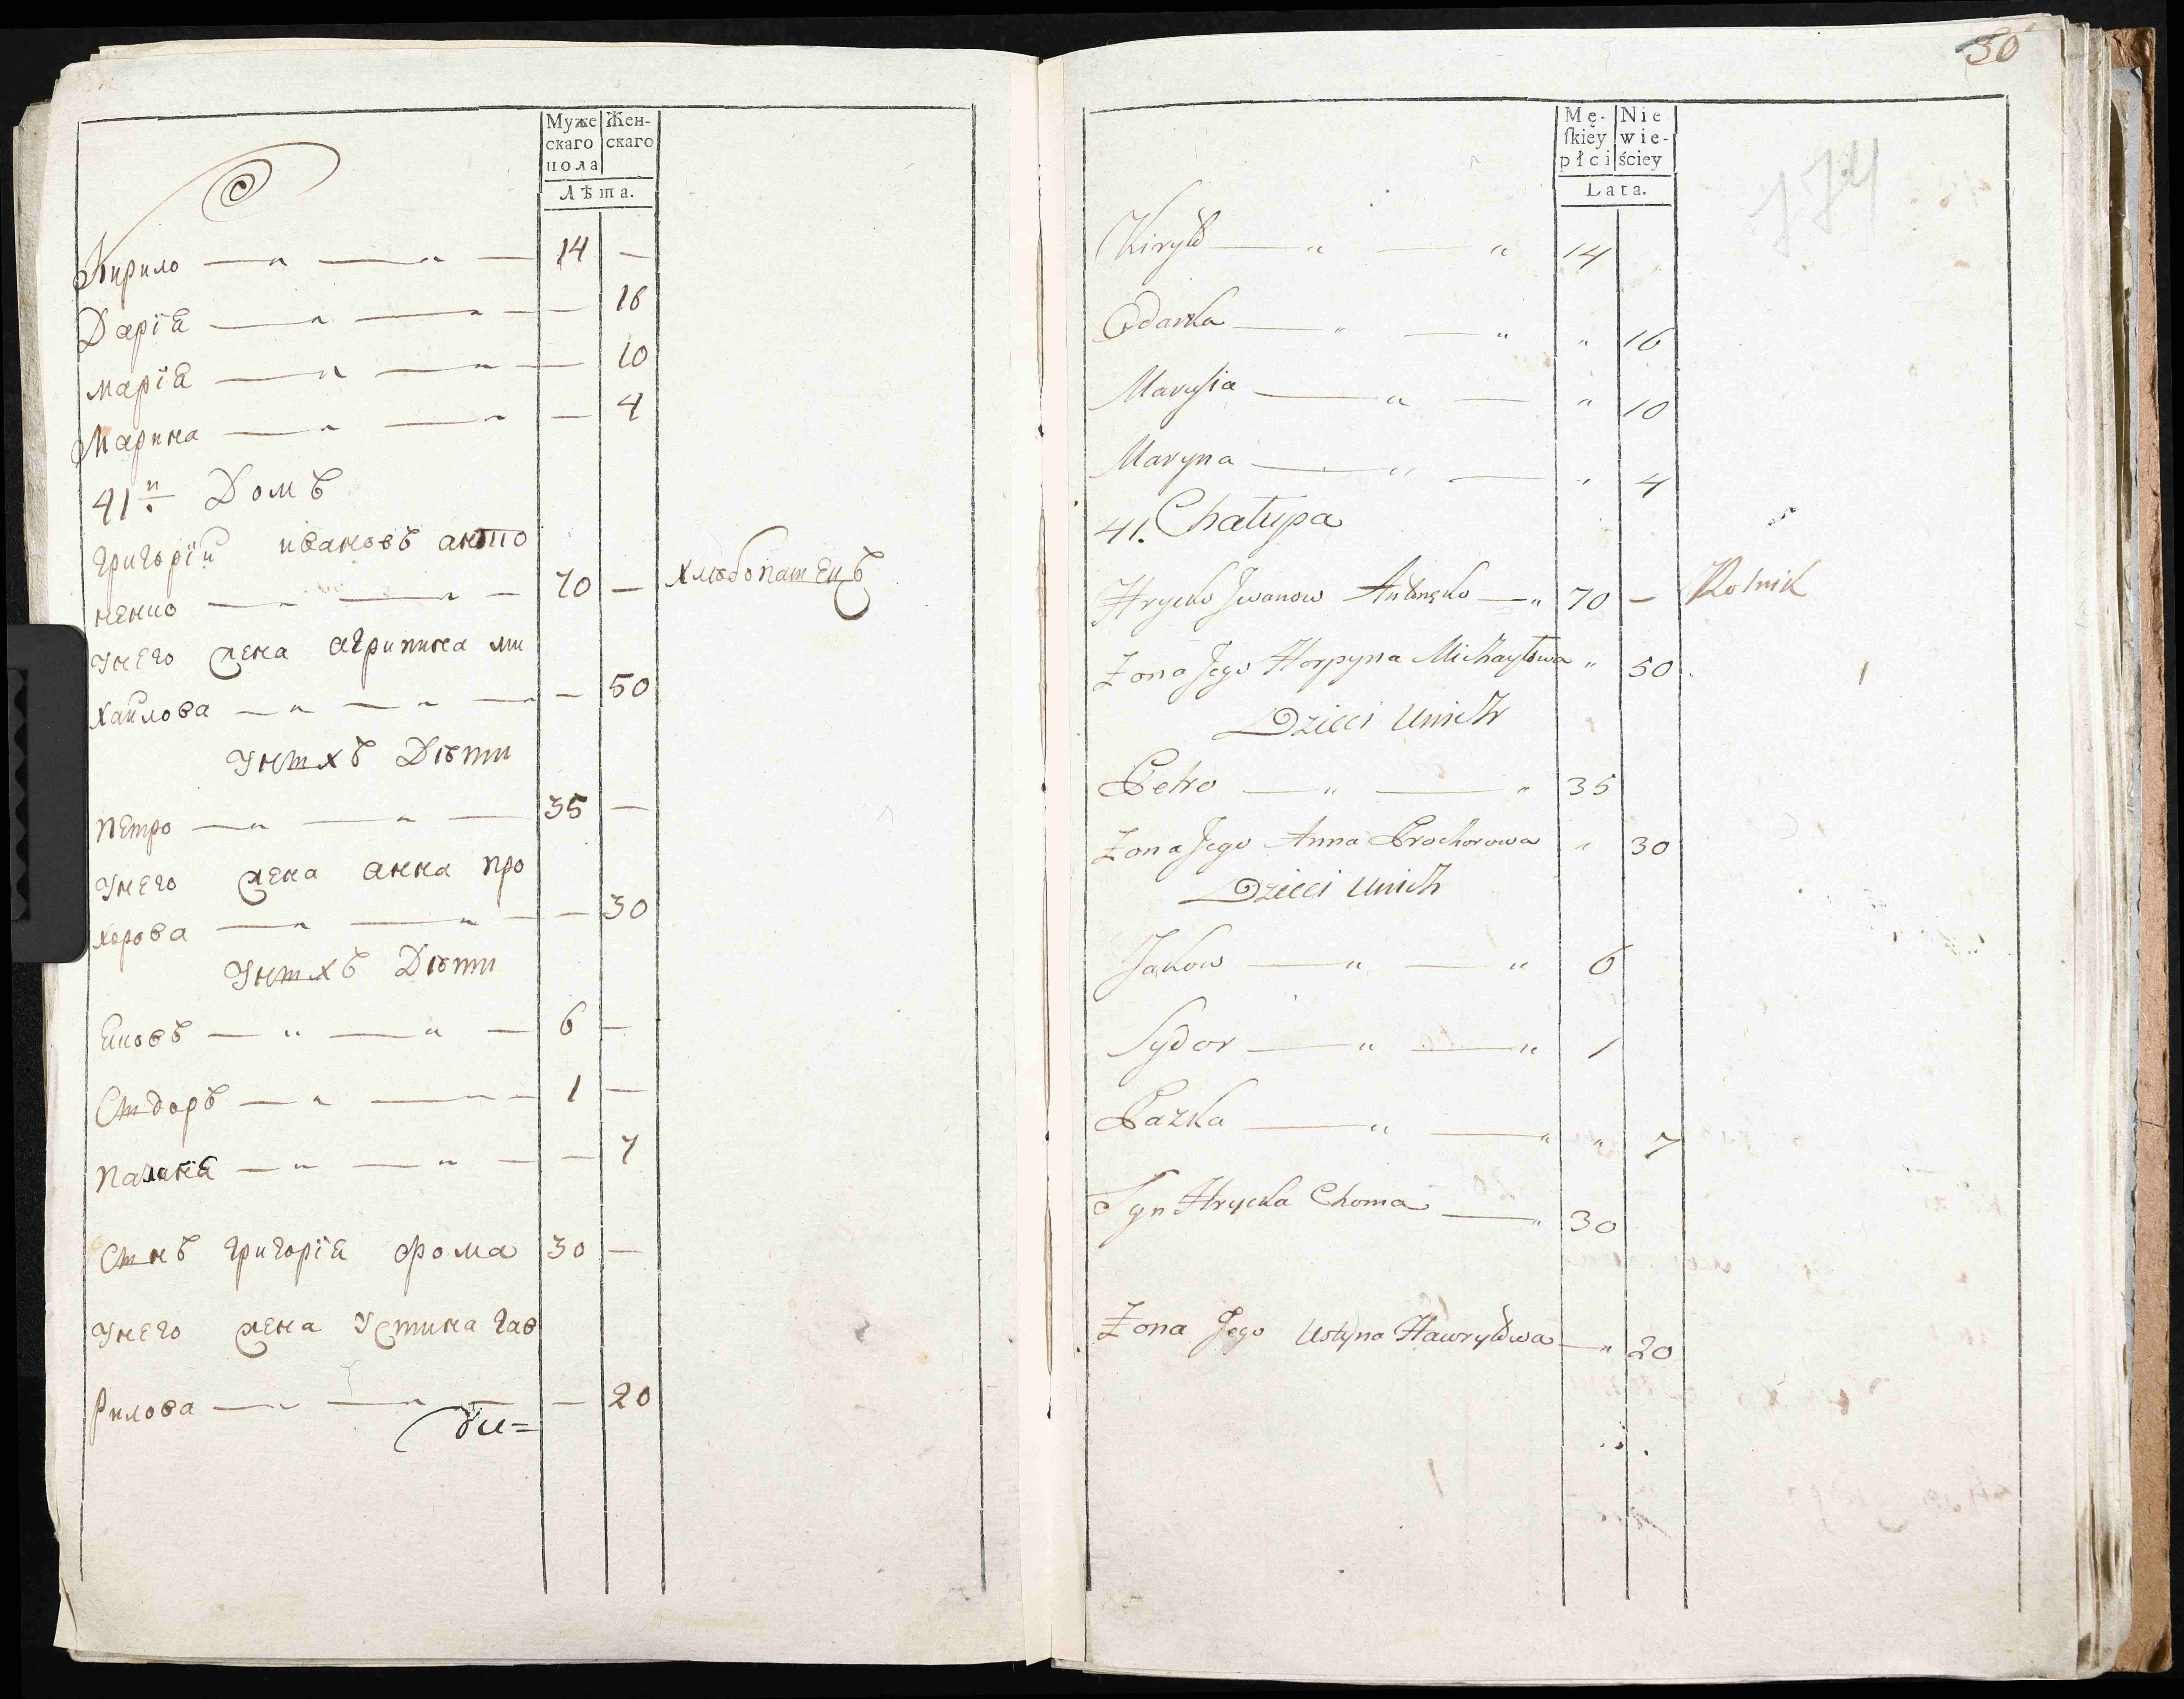 Муже
скаго
пола
Жен-
скаго
Лѣта.
Кирило 14 —
Дарїя — 16
Марїя — 10
Марина — 4
41й Домъ
Григорїй Ивановъ Анто
ненко 70 — Хлѣбопашецъ
У него жена Агрипина Ми
хайлова — 50
У нихъ Дѣти
Петро 35 —
У него жена Анна Про
хорова — 30
У нихъ Дѣти
Яковъ 6 —
Сидоръ 1 —
Паланія — 7
Синъ Григорїя Фома 30 —
У него жена Устина Гав
рилова — 20
30
174
Mę-
ſkiey
płci
Nie
wie-
ściey
Lata.
Kiryło " " 14
Odarka " " " 16
Marysia " " 10
Maryna " " 4
41. Chałupa
Hrycko Iwanow Antonęko " 70 — Rolnik
Żona Jego Horpyna Michayłowa " 50
Dzieci Unich
Petro " " 35
Żona Jego Anna Prochorowa " 30
Dzieci Unich
Jakow " " 6
Sydor " " 1
Pazka " " " 7
Syn Hrycka Choma " 30
Żona Jego Ustyna Hawryłowa " 20